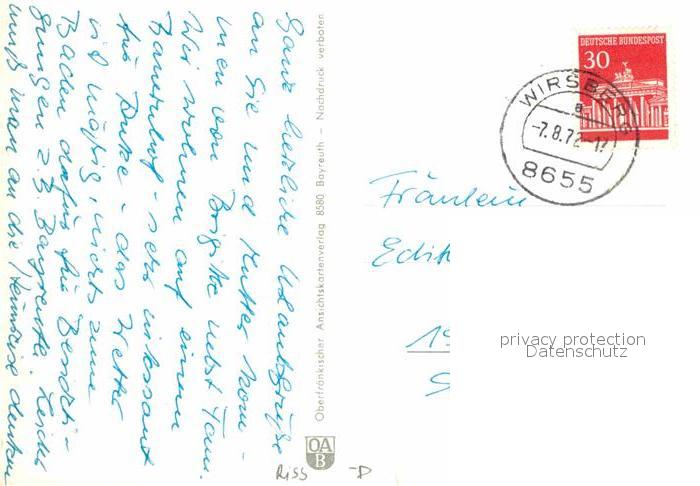 Ganz herzliche Urlaubsgrüße
an Sie und Mutter kom-
men von Brigitte nebst Fam.
Wir wohnen auf einem
Bauernhof - sehr interessant
für Anke - das Wetter
ist mäßig, nichts zum
Baden dafür für Besichti-
gungen z.B. Bayreuth. Leider
muß man an die Heimreise denken
Oberfränkischer Ansichtskartenverlag 8580 Bayreuth – Nachdruck verboten
OA
B
DEUTSCHE BUNDESPOST
30
WIRSBERG
a
-7.8.72-17
8655
Fräulein
Edith
19
privacy protection
Datenschutz
Riss -D